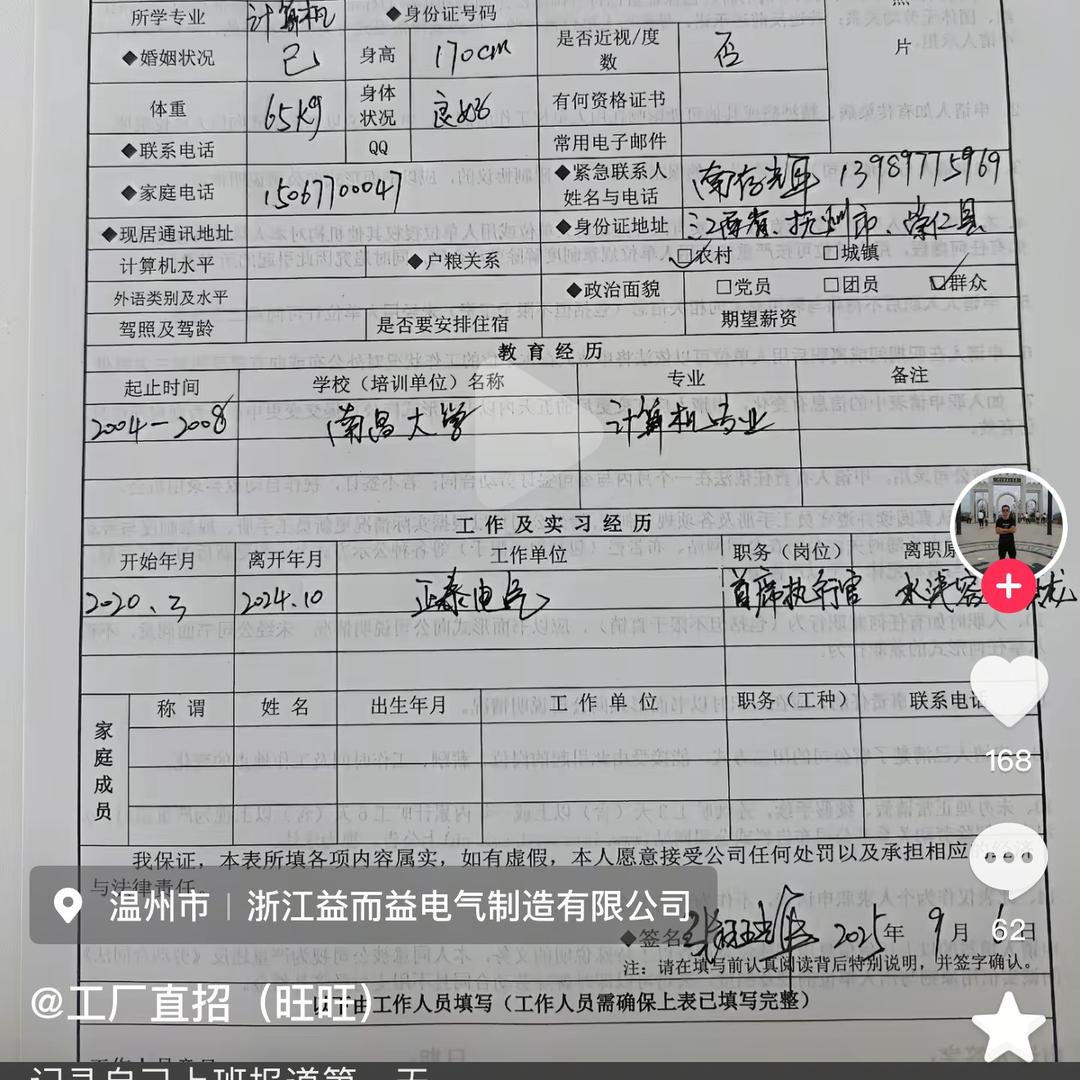 所学专业 计算机 ◆身份证号码
◆婚姻状况 已 身高 170cm 是否近视/度数 否 片
体重 65kg 身体状况 良好 有何资格证书
◆联系电话 QQ 常用电子邮件
◆家庭电话 15067700047 ◆紧急联系人姓名与电话 南存辉 13989775969
◆现居通讯地址 ◆身份证地址 江西省.抚州市.崇仁县
计算机水平 ◆户粮关系 □农村 □城镇
外语类别及水平 ◆政治面貌 □党员 □团员 □群众
驾照及驾龄 是否要安排住宿 期望薪资
教育经历
起止时间 学校（培训单位）名称 专业 备注
2004-2008 南昌大学 计算机专业
工作及实习经历
开始年月 离开年月 工作单位 职务（岗位） 离职原
2020.3 2024.10 正泰电气 首席执行官 水浅容 龙
家庭成员 称谓 姓名 出生年月 工作单位 职务（工种） 联系电话
我保证，本表所填各项内容属实，如有虚假，本人愿意接受公司任何处罚以及承担相应的经济
与法律责任。
温州市 | 浙江益而益电气制造有限公司
◆签名 2025年 9月 1日
注：请在填写前认真阅读背后特别说明，并签字确认。
@工厂直招（旺旺）
以下由工作人员填写（工作人员需确保上表已填写完整）
168
62